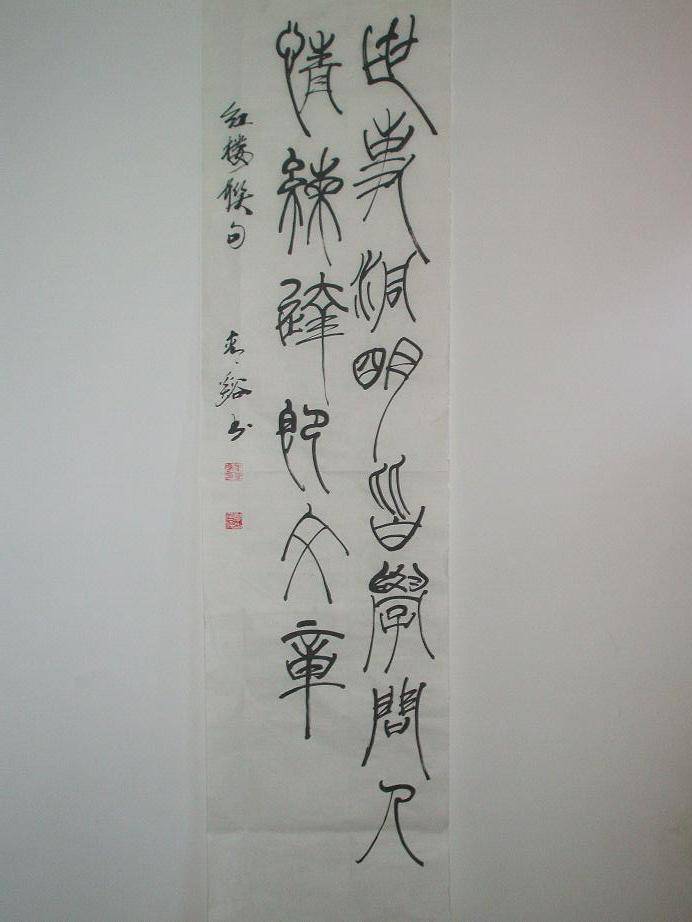 世事洞明皆學問人
情練達即文章
紅樓聯句
青谿书